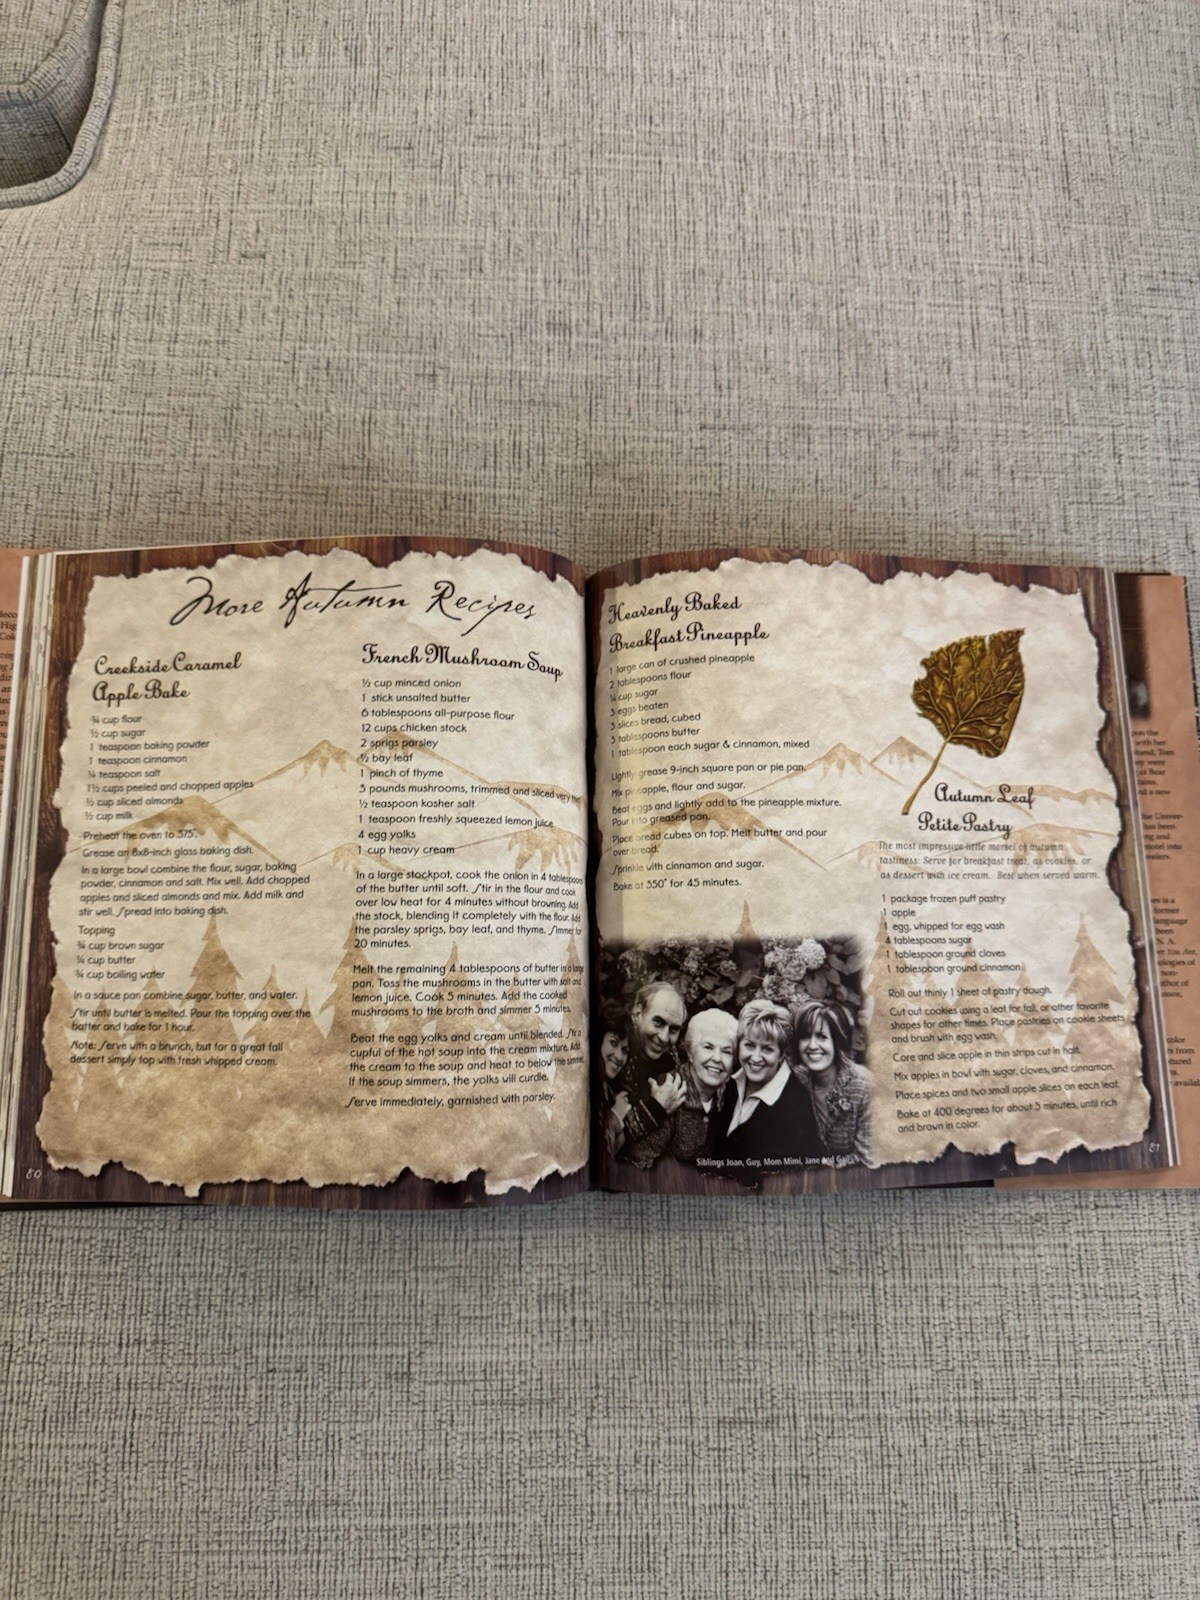 More Autumn Recipes
Creekside Caramel
Apple Bake
¾ cup flour
½ cup sugar
1 teaspoon baking powder
1 teaspoon cinnamon
¼ teaspoon salt
1½ cups peeled and chopped apples
½ cup sliced almonds
½ cup milk
Preheat the oven to 375°.
Grease an 8x8-inch glass baking dish.
In a large bowl combine the flour, sugar, baking
powder, cinnamon and salt. Mix well. Add chopped
apples and sliced almonds and mix. Add milk and
stir well. Spread into baking dish.
Topping
¾ cup brown sugar
¼ cup butter
¾ cup boiling water
In a sauce pan combine sugar, butter, and water.
Stir until butter is melted. Pour the topping over the
batter and bake for 1 hour.
Note: Serve with a brunch, but for a great fall
dessert simply top with fresh whipped cream.
80
French Mushroom Soup
½ cup minced onion
1 stick unsalted butter
6 tablespoons all-purpose flour
12 cups chicken stock
2 sprigs parsley
½ bay leaf
1 pinch of thyme
3 pounds mushrooms, trimmed and sliced very
½ teaspoon kosher salt
1 teaspoon freshly squeezed lemon juice
4 egg yolks
1 cup heavy cream
In a large stockpot, cook the onion in 4 tablespoons
of the butter until soft. Stir in the flour and cook
over low heat for 4 minutes without browning. Add
the stock, blending it completely with the flour. Add
the parsley sprigs, bay leaf, and thyme. Simmer for
20 minutes.
Melt the remaining 4 tablespoons of butter in a large
pan. Toss the mushrooms in the butter with salt and
lemon juice. Cook 5 minutes. Add the cooked
mushrooms to the broth and simmer 5 minutes.
Beat the egg yolks and cream until blended. Stir a
cupful of the hot soup into the cream mixture. Add
the cream to the soup and heat to below the simmer.
If the soup simmers, the yolks will curdle.
Serve immediately, garnished with parsley.
Heavenly Baked
Breakfast Pineapple
1 large can of crushed pineapple
2 tablespoons flour
¼ cup sugar
3 eggs beaten
3 slices bread, cubed
3 tablespoons butter
1 tablespoon each sugar & cinnamon, mixed
Lightly grease 9-inch square pan or pie pan.
Mix pineapple, flour and sugar.
Beat eggs and lightly add to the pineapple mixture.
Pour into greased pan.
Place bread cubes on top. Melt butter and pour
over bread.
Sprinkle with cinnamon and sugar.
Bake at 350° for 45 minutes.
Siblings Joan, Guy, Mom Mimi, Jane and
Autumn Leaf
Petite Pastry
The most impressive little morsel of autumn
tastiness. Serve for breakfast treat, as cookies, or
as dessert with ice cream. Best when served warm.
1 package frozen puff pastry
1 apple
1 egg, whipped for egg wash
4 tablespoons sugar
1 tablespoon ground cloves
1 tablespoon ground cinnamon
Roll out thinly 1 sheet of pastry dough.
Cut out cookies using a leaf for fall, or other favorite
shapes for other times. Place pastries on cookie sheets
and brush with egg wash.
Core and slice apple in thin strips cut in half.
Mix apples in bowl with sugar, cloves, and cinnamon.
Place spices and two small apple slices on each leaf.
Bake at 400 degrees for about 5 minutes, until rich
and brown in color.
81